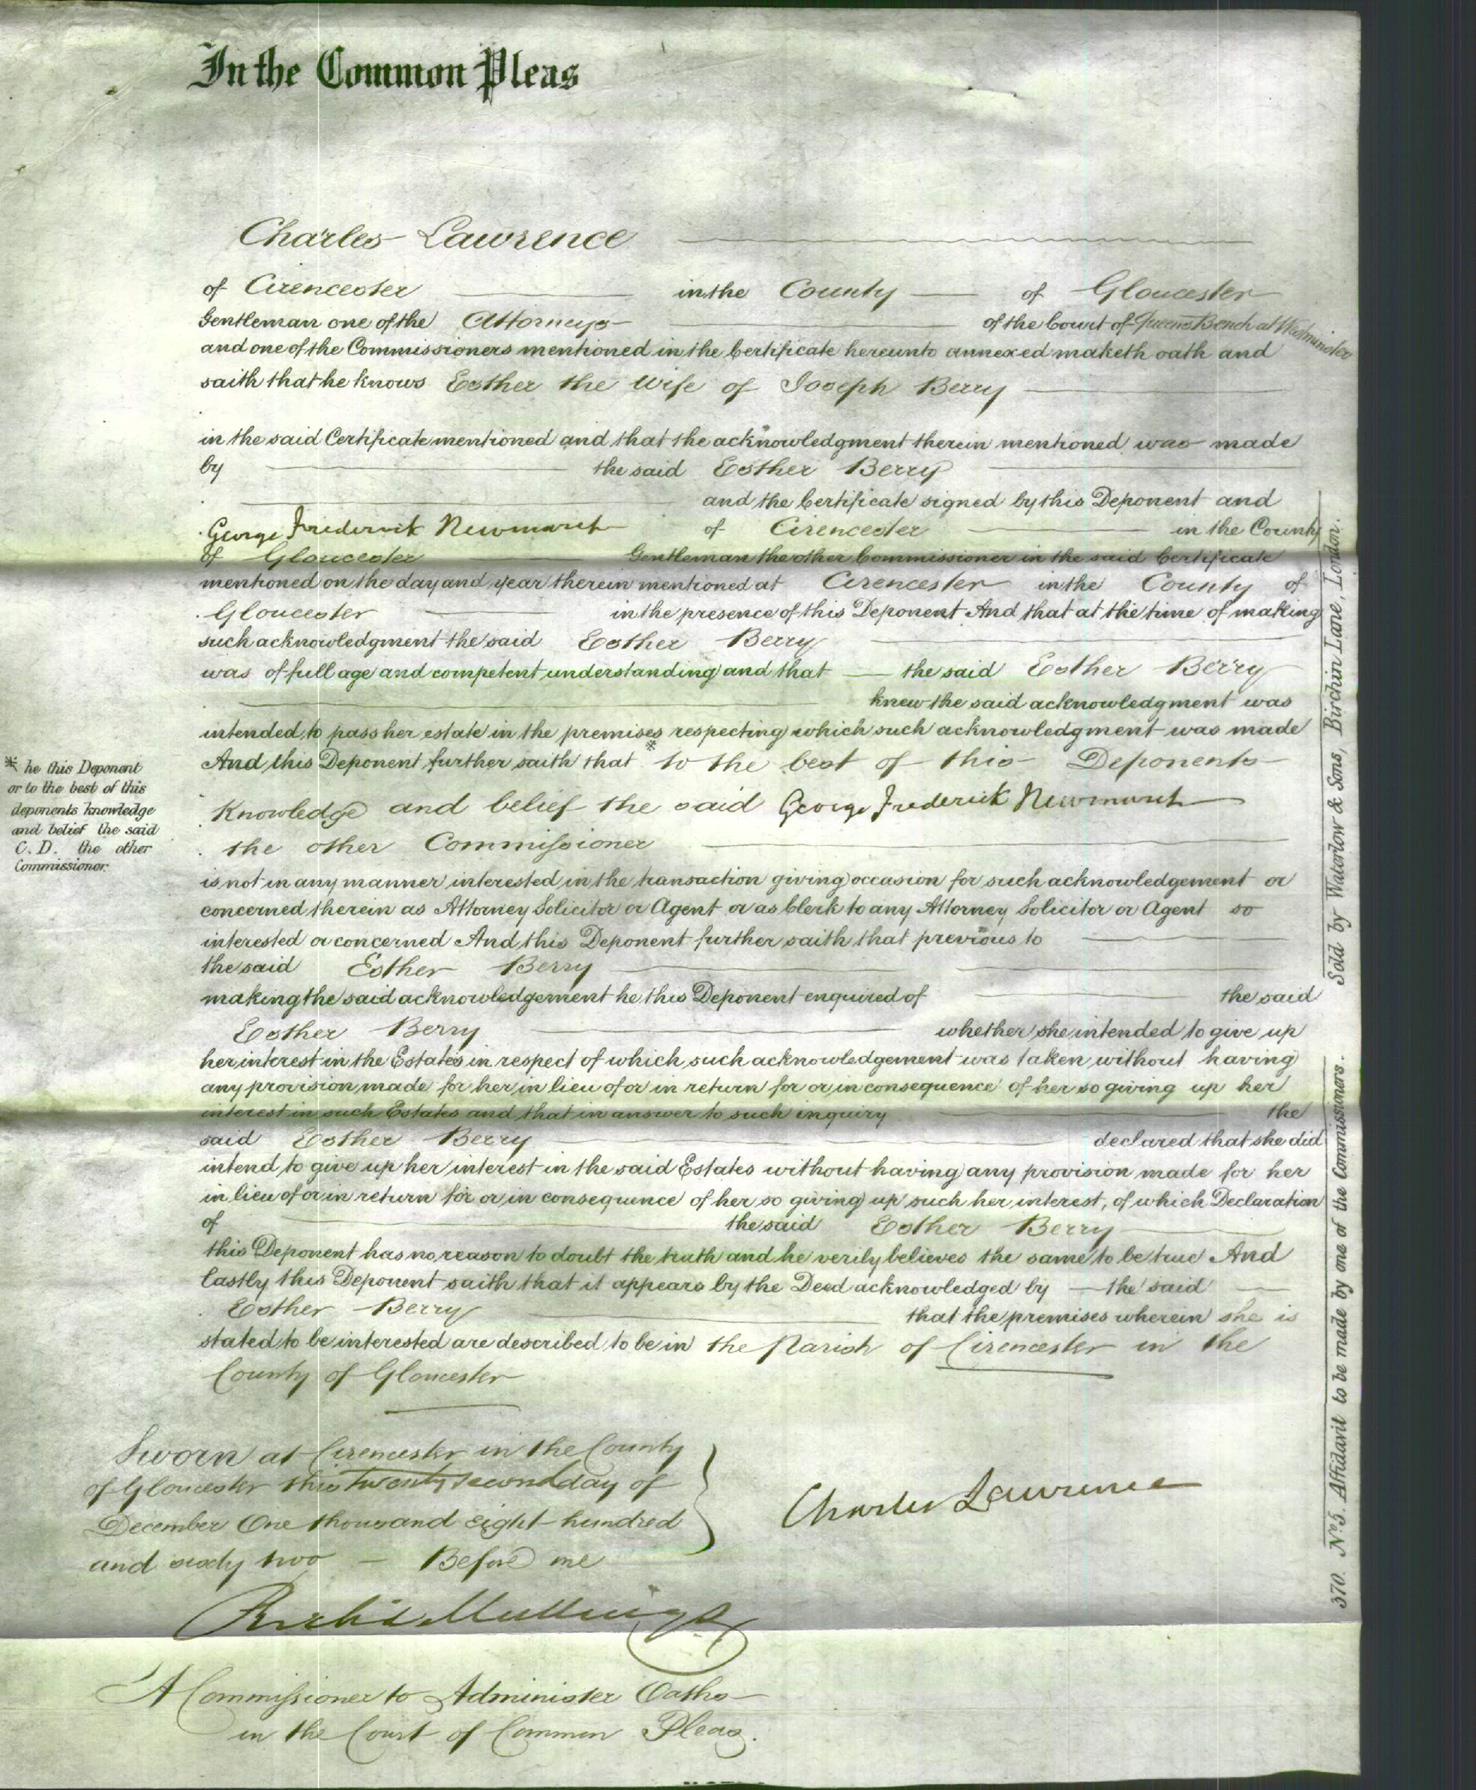 In the Common Pleas
Charles Lawrence
of Cirencester in the County of Gloucester
Gentleman one of the Attorneys of the Court of Queens Bench at Westminster
and one of the Commissioners mentioned in the Certificate hereunto annexed maketh oath and
saith that he knows Esther the Wife of Joseph Berry
in the said Certificate mentioned and that the acknowledgment therein mentioned was made
by the said Esther Berry
and the Certificate signed by this Deponent and
George Frederick Newmarch of Cirencester in the County
of Gloucester Gentleman the other Commissioner in the said Certificate
mentioned on the day and year therein mentioned at Cirencester in the County of
Gloucester in the presence of this Deponent And that at the time of making
such acknowledgment the said Esther Berry
was of full age and competent understanding and that the said Esther Berry
knew the said acknowledgment was
intended to pass her estate in the premises respecting which such acknowledgment was made
And this Deponent further saith that * to the best of this Deponents
Knowledge and belief the said George Frederick Newmarch
the other Commissioner
is not in any manner interested in the transaction giving occasion for such acknowledgement or
concerned therein as Attorney Solicitor or Agent or as Clerk to any Attorney Solicitor or Agent so
interested or concerned And this Deponent further saith that previous to
the said Esther Berry
making the said acknowledgement he this Deponent enquired of the said
Esther Berry whether she intended to give up
her interest in the Estates in respect of which such acknowledgement was taken without having
any provision made for her in lieu of or in return for or in consequence of her so giving up her
interest in such Estates and that in answer to such inquiry the
said Esther Berry declared that she did
intend to give up her interest in the said Estates without having any provision made for her
in lieu of or in return for or in consequence of her so giving up such her interest, of which Declaration
of the said Esther Berry
this Deponent has no reason to doubt the truth and he verily believes the same to be true And
lastly this Deponent saith that it appears by the Deed acknowledged by the said
Esther Berry that the premises wherein she is
stated to be interested are described to be in the Parish of Cirencester in the
County of Gloucester
Sworn at Cirencester in the County
of Gloucester this twenty second day of
December One thousand eight hundred
and sixty two – Before me
Charles Lawrence
Richd Mullings
A Commissioner to Administer Oaths
in the Court of Common Pleas.
* he this Deponent
or to the best of this
deponents knowledge
and belief the said
C. D. the other
Commissioner.
370. No. 5. Affidavit to be made by one of the Commissioners. Sold by Waterlow & Sons, Birchin Lane, London.